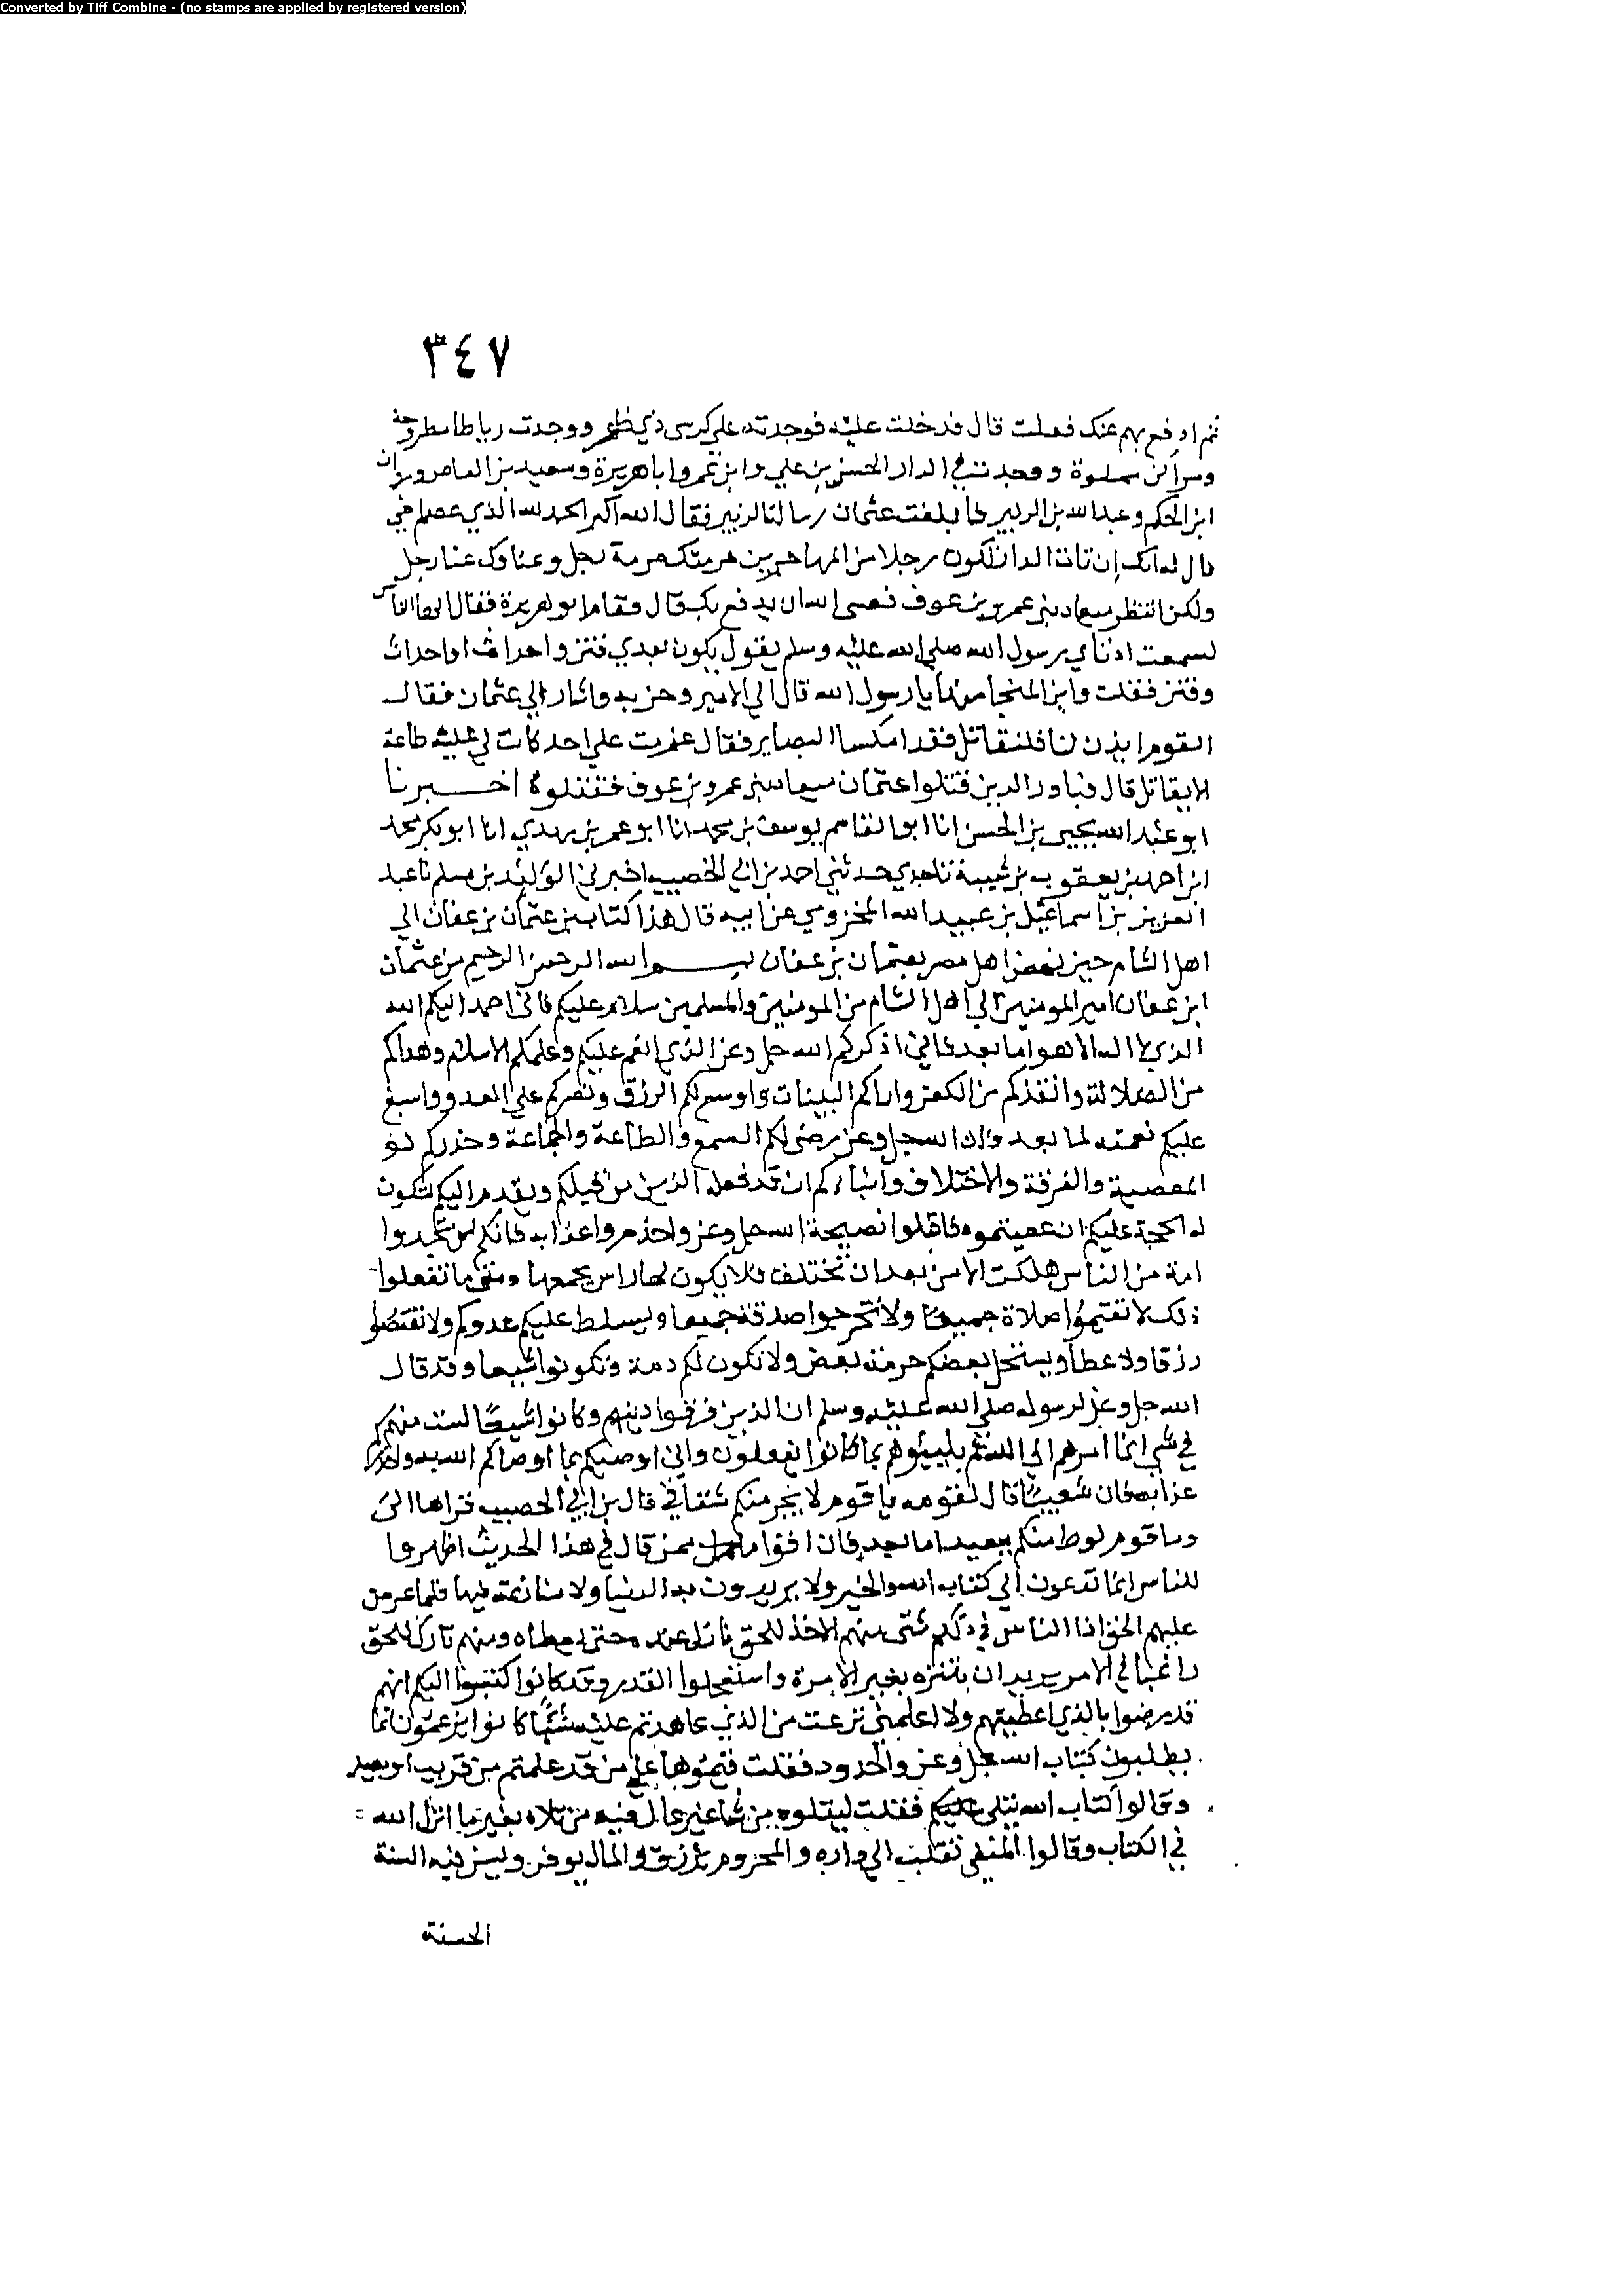 Converted by Tiff Combine - (no stamps are applied by registered version)
٣٤٧
ثم ادفع بهم عنك فعلت قال فدخلت عليه فوجدته علي كرسى ذي ظهر ووجدت رياطا مطروحة
ومراكن مملوة ووجدت في الدار الحسن بن علي وابن عمر وابا هريرة وسعيد بن العاص ومروان
ابن الحكم وعبد الله بن الزبير فابلغت عثمان رسالة الزبير فقال الله اكبر الحمد لله الذي عصم اخي
قال له انك ان تات الدار تكون رجلا من المهاجرين حرمتك حرمة رجل وعناوك عنا رجل
ولكن انتظر ميعاد بني عمرو بن عوف فعسى الله ان يدفع بك قال فقام ابو هريرة فقال ايها الناس
لسمعت اذناي رسول الله صلي الله عليه وسلم يقول يكون بعدي فتن واحداث او احداث
وفتن فقلت واين المنجا منها يا رسول الله قال الي الامير وحزبه واشار الي عثمان فقال
القوم ايذن لنا فلنقاتل فقد امكسا البصاير فقال عزمت علي احد كانت لي عليه طاعة
الا يقاتل قال فبادر الذين قتلوا عثمان ميعاد بني عمرو بن عوف فقتلوه اخبرنا
ابو عبد الله يحيى بن الحسن انا ابو القاسم يوسف بن محمد انا ابو عمر بن مهدي انا ابو بكر محمد
ابن احمد بن يعقوب بن شيبة نا جدي حدثني احمد بن ابي الخصيب اخبرني الوليد بن مسلم نا عبد
العزيز بن اسماعيل بن عبيد الله المخزومي عن ابيه قال هذا كتاب من عثمان بن عفان الي
اهل الشام حين نهض اهل مصر بعثمان بن عفان بسم الله الرحمن الرحيم من عثمان
ابن عفان امير المومنين الي اهل الشام من المومنين والمسلمين سلام عليكم فاني احمد اليكم الله
الذي لا اله الا هو اما بعد فاني اذكركم الله جل وعز الذي انعم عليكم وعلمكم الاسلام وهداكم
من الضلالة وانقذكم من الكفر واراكم البينات واوسع لكم الرزق ونصركم علي العدو واسبغ
عليكم نعمته اما بعد فان الله جل وعز رضى لكم السمع والطاعة والجماعة وحذركم
المعصية والفرقة والاختلاف وانباكم ان قد فعله الذين من قبلكم وتقدم اليكم لتكون
له الحجة عليكم ان عصيتموه فاقبلوا نصيحة الله جل وعز واحذروا عذابه فانكم لن تجدوا
امة من الناس هلكت الا من بعد ان تختلف فلا يكون لها راس يجمعها ومتى ما تفعلوا
ذلك لا تقيموا صلاة جميعا ولا تخرجوا صدقة جميعا ويسلط عليكم عدوكم ولا تقتضوا
رزقا ولا عطا ويستحل بعضكم حرمة بعض ولا تكون لكم ذمة وتكونوا شيعا وقد قال
الله جل وعز لرسوله صلي الله عليه وسلم ان الذين فرقوا دينهم وكانوا شيعا لست منهم
في شي انما امرهم الي الله ثم ينبئهم بما كانوا يفعلون واني اوصيكم بما اوصاكم الله به واحذركم
عذابه فان شعيبا قال لقومه يا قوم لا يجرمنكم شقاقي قال بن ابي الخصيب قراها الي
وما قوم لوط منكم ببعيد اما بعد فان اقواما ممن قال في هذا الحديث اظهروا
للناس انما تدعون الي كتاب الله والخير ولا يريدون به الدنيا ولا منازعة فيها فلما عرض
عليهم الحق اذا الناس في ذلكم شتى منهم الاخذ للحق نازل عنده حتى يعطاه ومنهم تارك للحق
راغبا في الامر يريد ان يتنزه بغير الامرة واستعجلوا القدر وقد كانوا كتبوا اليكم انهم
قد رضوا بالذي اعطيتهم ولا اعلمني نزعت من الذي عاهدتم عليه شيئا كانوا يزعمون انما
يطلبون كتاب الله جل وعز والحدود فقلت فتموها علي من قد علمتم من قريب او بعيد
وقالوا كتاب الله يتلى عليكم فقلت ليتلوه من شا غير عال فيه من تلاه بغير ما انزل الله
في الكتاب وقالوا المنفى نقلت الي داره والمحروم يرزق والمال يوفر وليسن فيه السنة
الحسنة